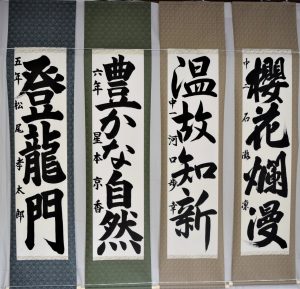 櫻花爛漫
温故知新
中一 河口
豊かな自然
六年 星本京香
登龍門
五年 松尾孝太郎